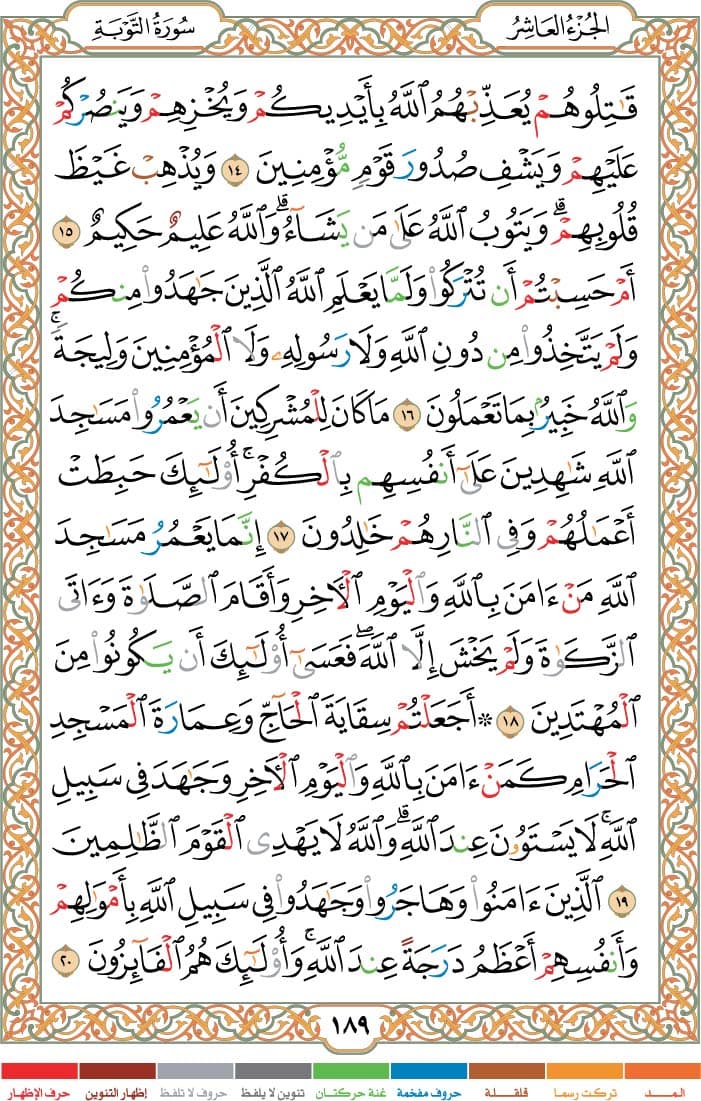 الجُزْءُ العَاشِرُ
سُورَةُ التَّوْبَةِ
قَٰتِلُوهُمْ يُعَذِّبْهُمُ ٱللَّهُ بِأَيْدِيكُمْ وَيُخْزِهِمْ وَيَنصُرْكُمْ
عَلَيْهِمْ وَيَشْفِ صُدُورَ قَوْمٍ مُّؤْمِنِينَ ١٤ وَيُذْهِبْ غَيْظَ
قُلُوبِهِمْ ۗ وَيَتُوبُ ٱللَّهُ عَلَىٰ مَن يَشَآءُ ۗ وَٱللَّهُ عَلِيمٌ حَكِيمٌ ١٥
أَمْ حَسِبْتُمْ أَن تُتْرَكُوا۟ وَلَمَّا يَعْلَمِ ٱللَّهُ ٱلَّذِينَ جَٰهَدُوا۟ مِنكُمْ
وَلَمْ يَتَّخِذُوا۟ مِن دُونِ ٱللَّهِ وَلَا رَسُولِهِۦ وَلَا ٱلْمُؤْمِنِينَ وَلِيجَةً ۚ
وَٱللَّهُ خَبِيرٌۢ بِمَا تَعْمَلُونَ ١٦ مَا كَانَ لِلْمُشْرِكِينَ أَن يَعْمُرُوا۟ مَسَٰجِدَ
ٱللَّهِ شَٰهِدِينَ عَلَىٰٓ أَنفُسِهِم بِٱلْكُفْرِ ۚ أُو۟لَٰٓئِكَ حَبِطَتْ
أَعْمَٰلُهُمْ وَفِى ٱلنَّارِ هُمْ خَٰلِدُونَ ١٧ إِنَّمَا يَعْمُرُ مَسَٰجِدَ
ٱللَّهِ مَنْ ءَامَنَ بِٱللَّهِ وَٱلْيَوْمِ ٱلْءَاخِرِ وَأَقَامَ ٱلصَّلَوٰةَ وَءَاتَى
ٱلزَّكَوٰةَ وَلَمْ يَخْشَ إِلَّا ٱللَّهَ ۖ فَعَسَىٰٓ أُو۟لَٰٓئِكَ أَن يَكُونُوا۟ مِنَ
ٱلْمُهْتَدِينَ ١٨ ۞ أَجَعَلْتُمْ سِقَايَةَ ٱلْحَآجِّ وَعِمَارَةَ ٱلْمَسْجِدِ
ٱلْحَرَامِ كَمَنْ ءَامَنَ بِٱللَّهِ وَٱلْيَوْمِ ٱلْءَاخِرِ وَجَٰهَدَ فِى سَبِيلِ
ٱللَّهِ ۚ لَا يَسْتَوُۥنَ عِندَ ٱللَّهِ ۗ وَٱللَّهُ لَا يَهْدِى ٱلْقَوْمَ ٱلظَّٰلِمِينَ
١٩ ٱلَّذِينَ ءَامَنُوا۟ وَهَاجَرُوا۟ وَجَٰهَدُوا۟ فِى سَبِيلِ ٱللَّهِ بِأَمْوَٰلِهِمْ
وَأَنفُسِهِمْ أَعْظَمُ دَرَجَةً عِندَ ٱللَّهِ ۚ وَأُو۟لَٰٓئِكَ هُمُ ٱلْفَآئِزُونَ ٢٠
١٨٩
المـــد
تركت رسما
قلقـلـة
حروف مفخمة
غنة حركتان
تنوين لا يلفظ
حروف لا تلفظ
إظهار التنوين
حرف الإظهار